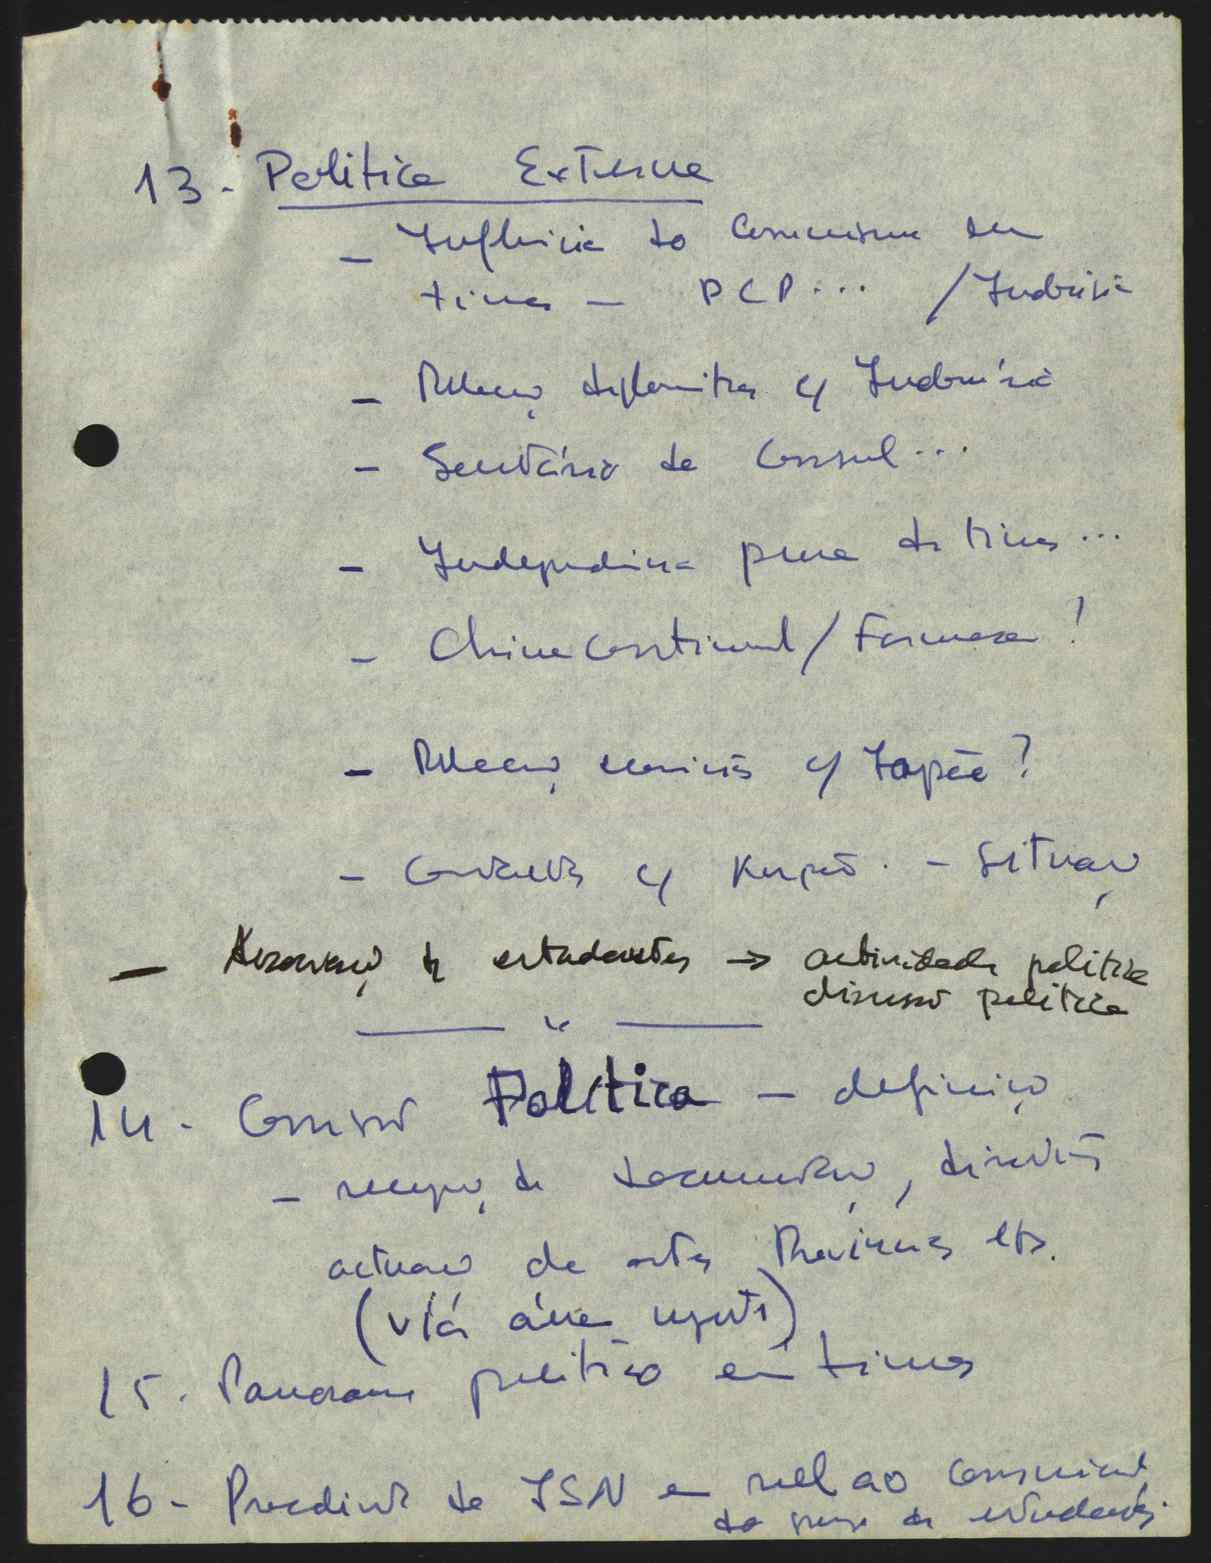 13. Politica Externa
- Influência do Comunismo em
Timor - PCP... / Indonésia
- Relações diplomáticas c/ Indonésia
- Secretário do Consul...
- Independência para de Timor...
- China Continental / Formosa!
- Relações comerciais c/ Japão?
- Contactos c/ Kupão. - Situação
- de estudantes → actividade politica
discussão politica
— " —
14. Comissão Politica - definição
- recepção de documentação, directivas
actuação de outras Provincias etc.
(v/ área)
15. Panorama politico em Timor
16 - do ISN em rel ao
do de estudantes.